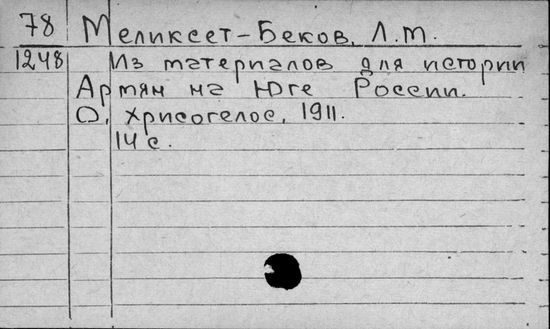 78 Меликсет-Беков, Л.М.
1248 Из материалов для истории
Армян на Юге России.
О, Хрисогелос, 1911.
14 с.